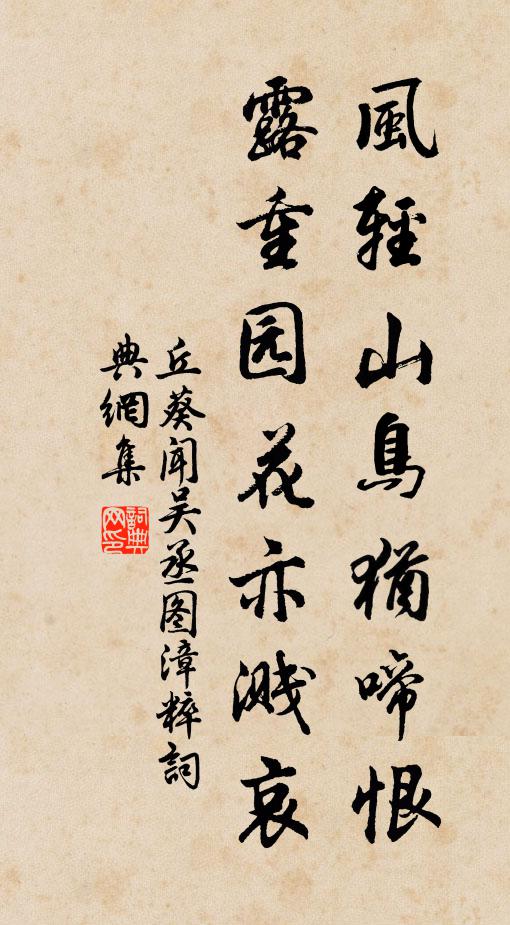 風輕山鳥猶啼恨
露重园花亦溅哀
丘葵闻吴丞图漳粹詞
典網集
詞典
网印